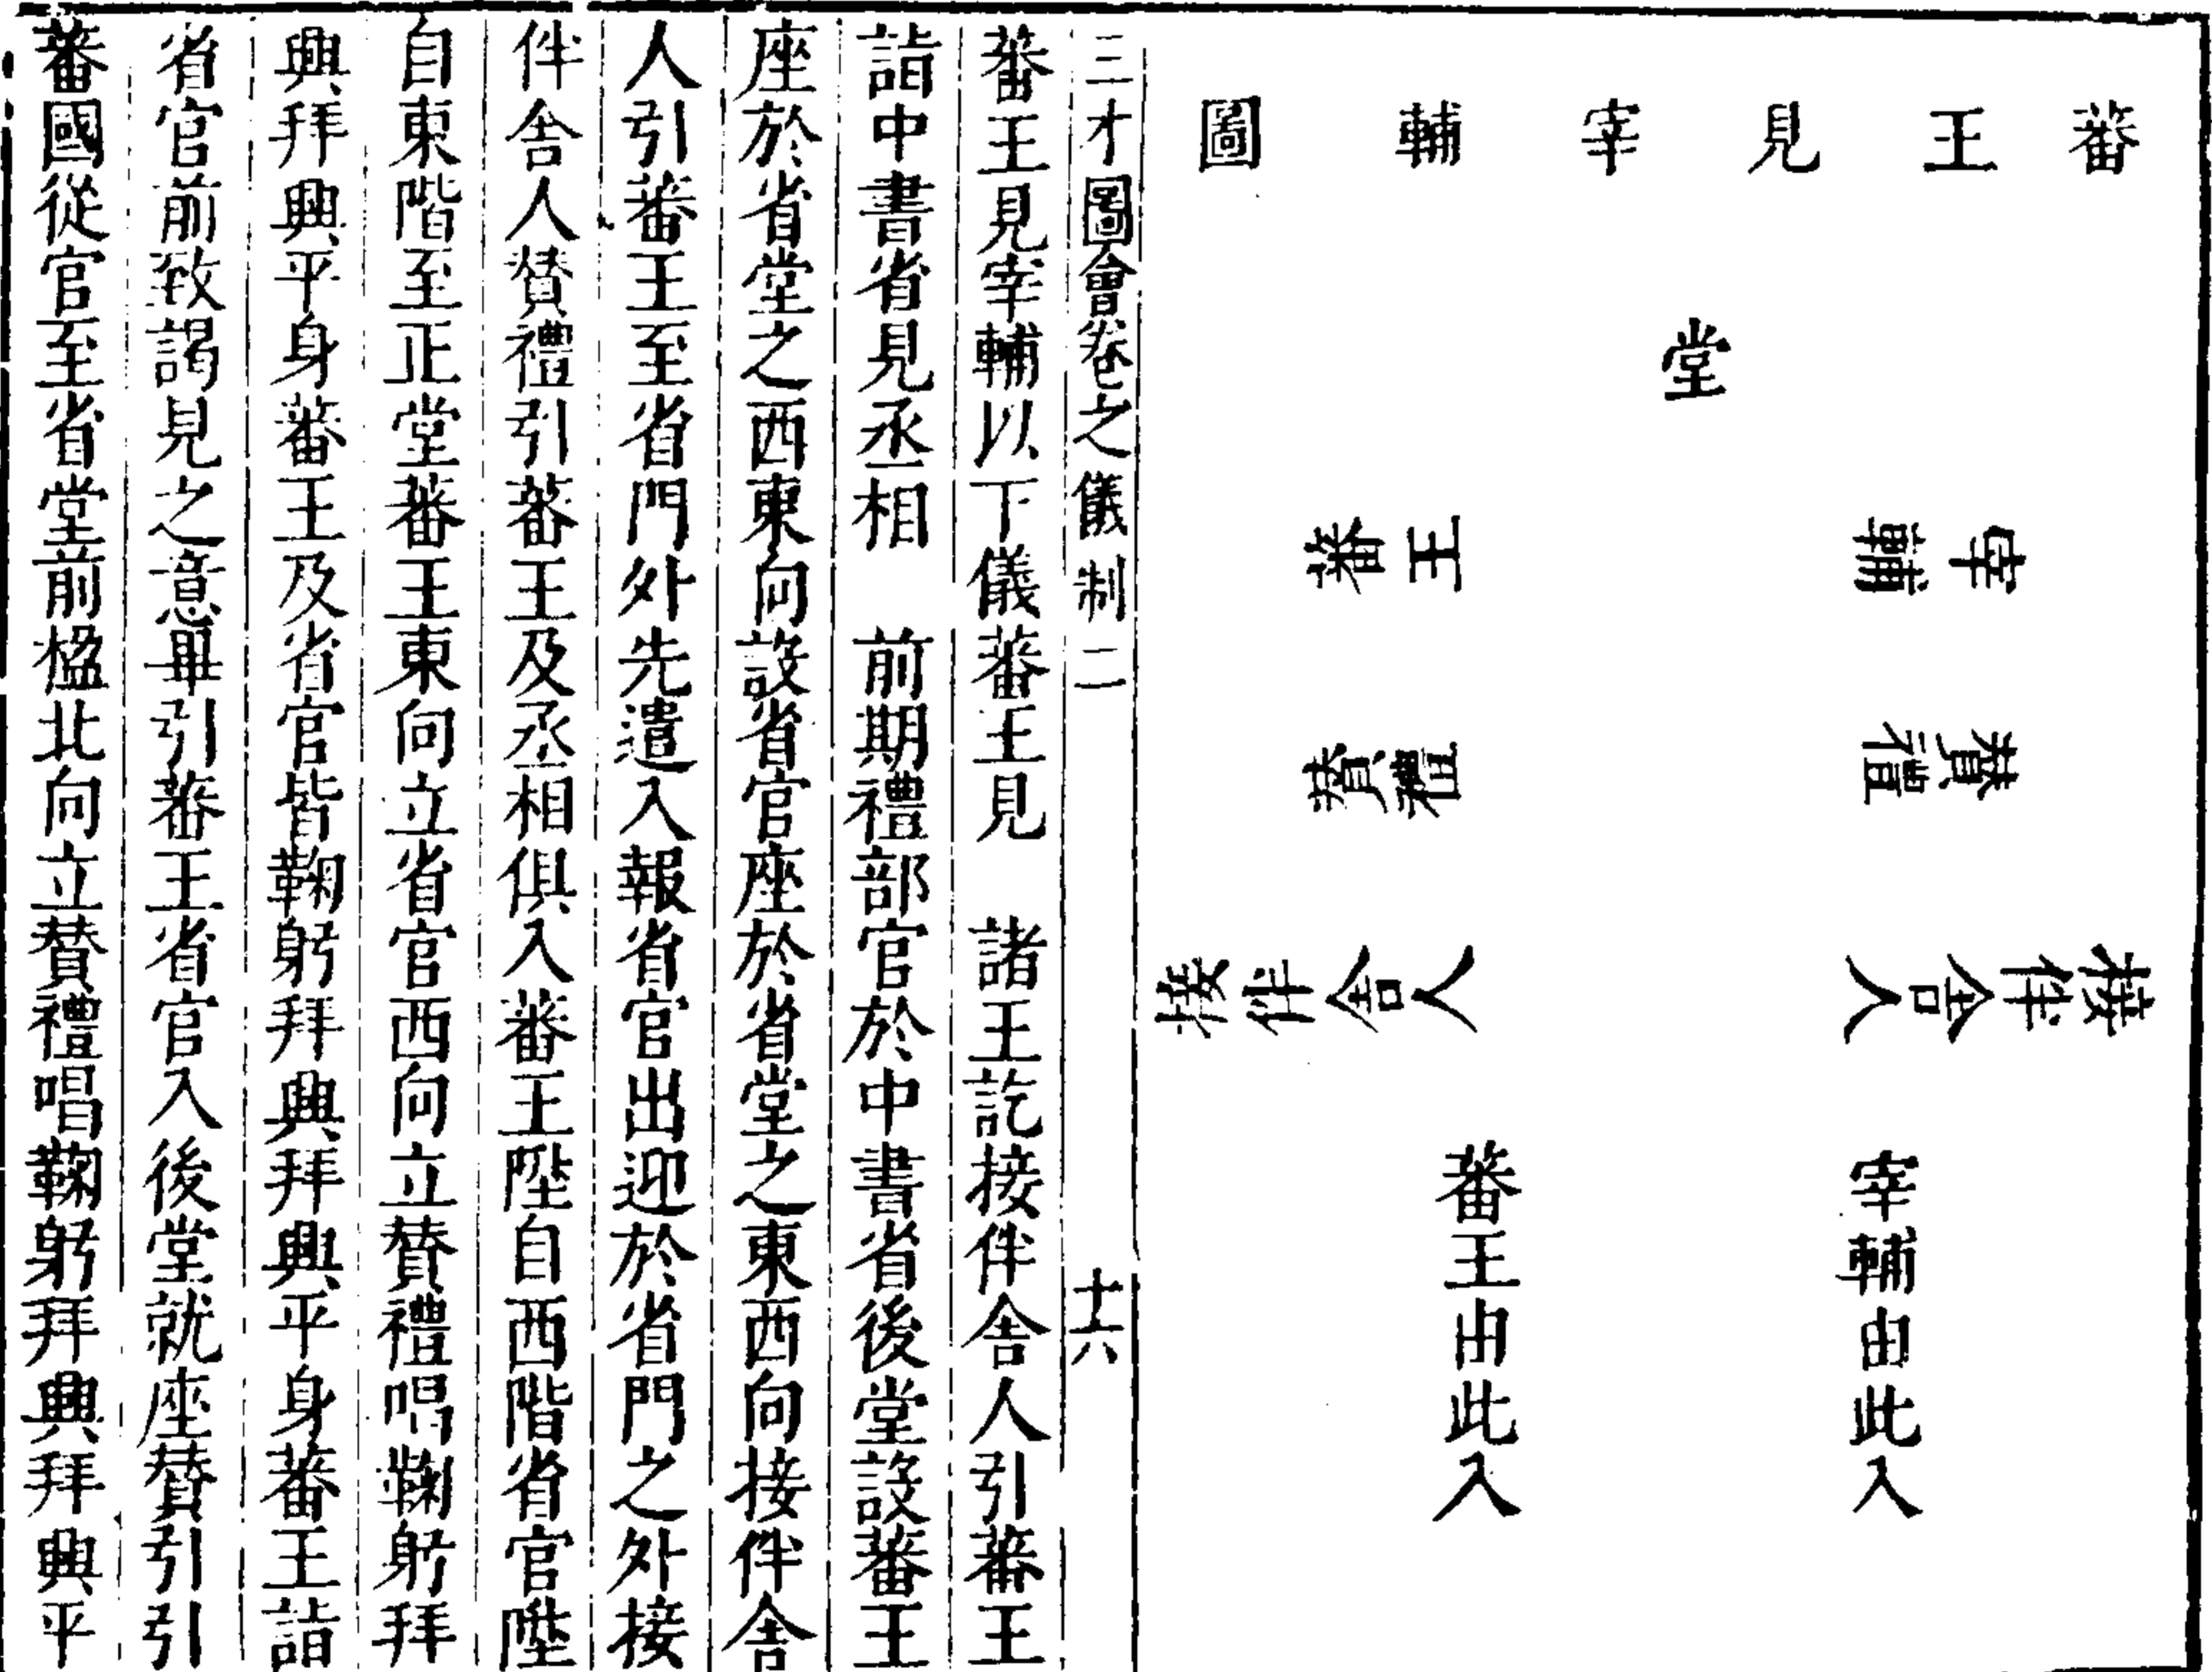 蕃王見宰輔圖
堂
宰輔
蕃王
贊禮
贊禮
接伴舍人
接伴舍人
宰輔由此入
蕃王由此入
三才圖會卷之儀制二 十六
蕃王見宰輔以下儀蕃王見 諸王訖接伴舍人引蕃王
詣中書省見丞相 前期禮部官於中書省後堂設蕃王
座於省堂之西東向設省官座於省堂之東西向接伴舍
人引蕃王至省門外先遣入報省官出迎於省門之外接
伴舍人贊禮引蕃王及丞相俱入蕃王陞自西階省官陞
自東階至正堂蕃王東向立省官西向立贊禮唱鞠躬拜
興拜興平身蕃王及省官皆鞠躬拜興拜興平身蕃王詣
省官前致謁見之意畢引蕃王省官入後堂就座贊引引
蕃國從官至省堂前楹北向立贊禮唱鞠躬拜興拜興平